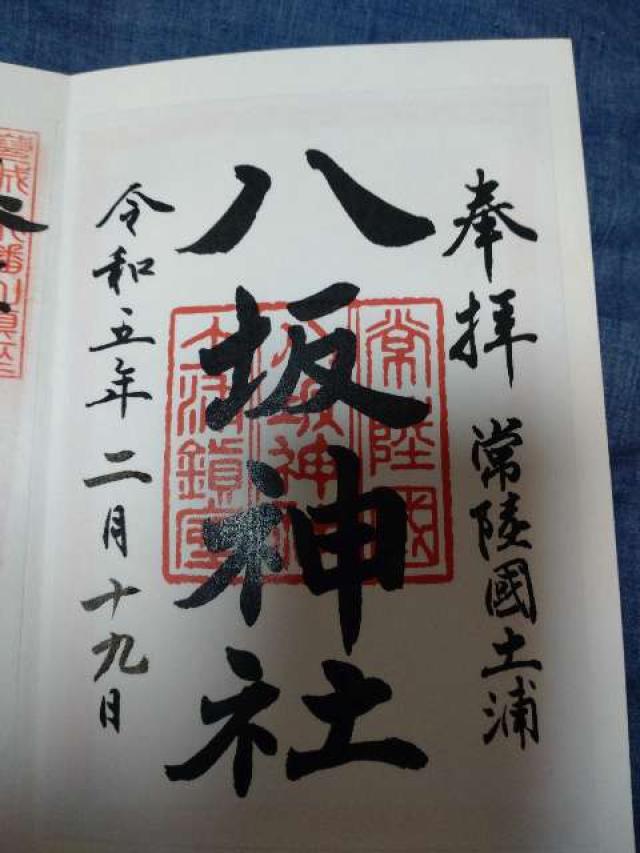 奉拝
常陸國土浦
八坂神社
常陸國
八坂神社
大津鎮座
令和五年二月十九日